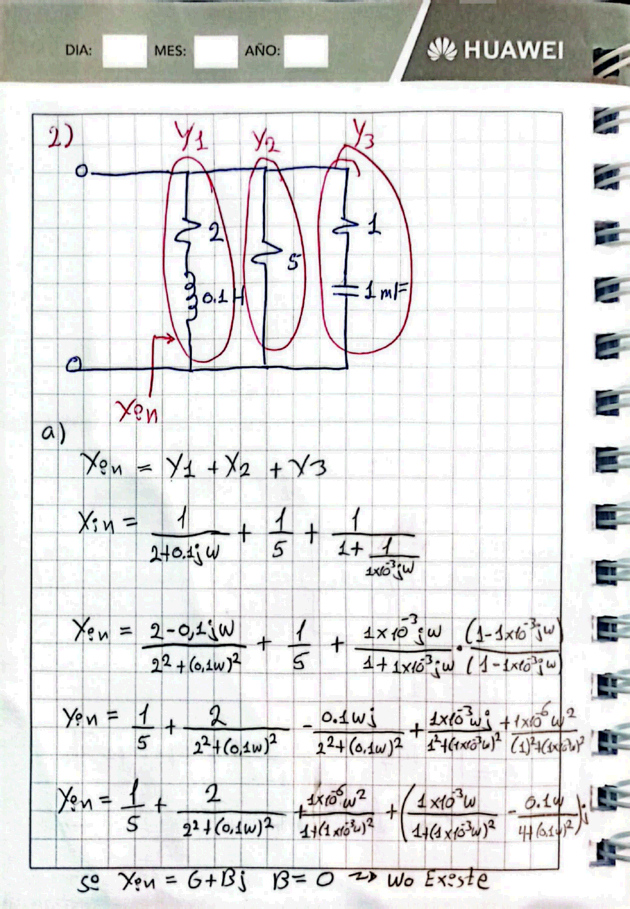 DIA: MES: AÑO: HUAWEI
2) Y1 Y2 Y3
2 5 1
0.1H 1mF
Yen
a)
Yen = Y1 + Y2 + Y3
Yin = 1/(2+0.1jw) + 1/5 + 1/(1+ 1/(1x10^-3jw))
Yen = (2-0,1jw)/(2^2+(0,1w)^2) + 1/5 + (1x10^-3jw)/(1+1x10^-3jw) · (1-1x10^-3jw)/(1-1x10^-3jw)
Yen = 1/5 + 2/(2^2+(0,1w)^2) - 0.1wj/(2^2+(0,1w)^2) + 1x10^-3wj/(1^2+(1x10^-3w)^2) + 1x10^-6w^2/((1)^2+(1x10^-3w)^2)
Yen = 1/5 + 2/(2^2+(0,1w)^2) + 1x10^-6w^2/(1+(1x10^-3w)^2) + (1x10^-3w/(1+(1x10^-3w)^2) - 0.1w/(4+(0,1w)^2))j
so Yen = G+Bj B=0 ~> wo Existe